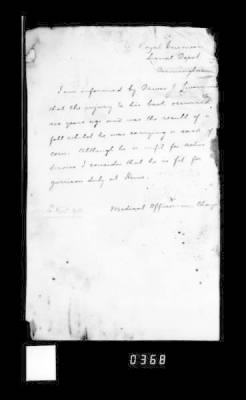 Royal
Depot
Birmingham
I am informed by
that the injury to his back occurred
six years ago and was the result of a
fall whilst he was carrying a sack of
corn. Although he is unfit for active
service I consider that he is fit for
garrison duty at Home.
Medical Officer in Charge
0368